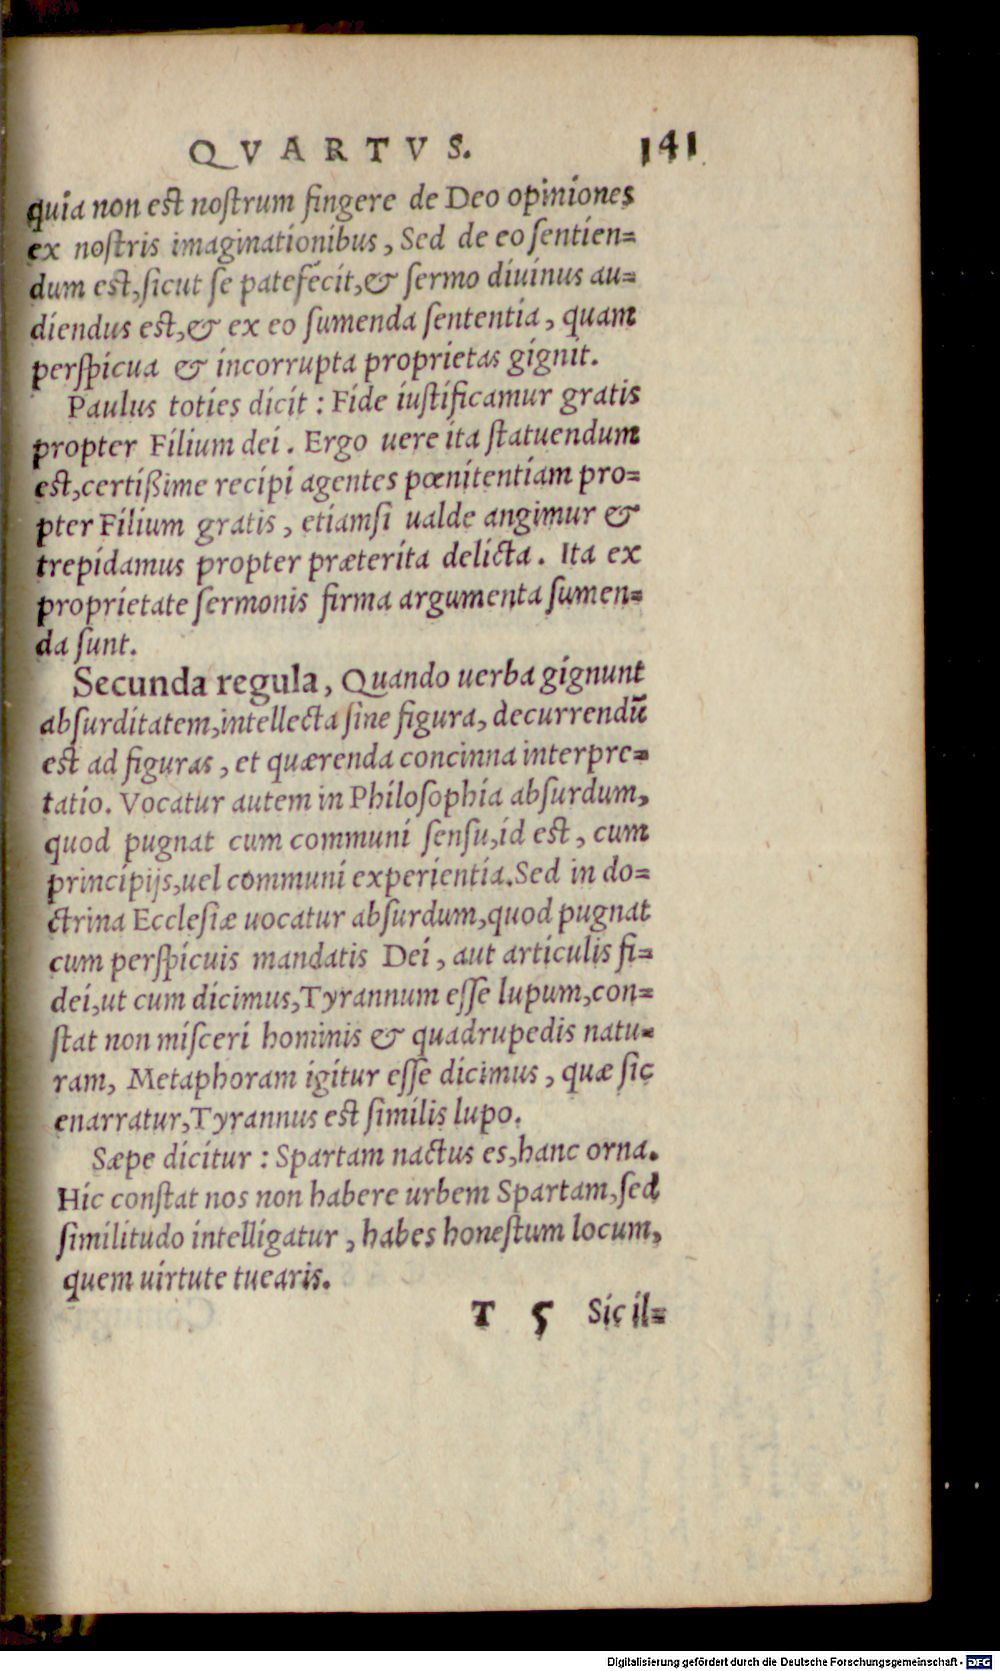 QVARTVS. 141
quia non est noſtrum fingere de Deo opiniones
ex noſtris imaginationibus, Sed de eo ſentien=
dum est, ſicut ſe patefecit, & ſermo diuinus au=
diendus est, & ex eo ſumenda ſententia, quam
perſpicua & incorrupta proprietas gignit.
Paulus toties dicit: Fide iuſtificamur gratis
propter Filium dei. Ergo uere ita ſtatuendum
est, certißime recipi agentes pœnitentiam pro=
pter Filium gratis, etiamſi ualde angimur &
trepidamus propter præterita delicta. Ita ex
proprietate ſermonis firma argumenta ſumen=
da ſunt.
Secunda regula, Quando uerba gignunt
abſurditatem, intellecta ſine figura, decurrendũ
est ad figuras, et quærenda concinna interpre=
tatio. Vocatur autem in Philoſophia abſurdum,
quod pugnat cum communi ſenſu, id est, cum
principijs, uel communi experientia. Sed in do=
ctrina Eccleſiæ uocatur abſurdum, quod pugnat
cum perſpicuis mandatis Dei, aut articulis fi=
dei, ut cum dicimus, Tyrannum eſſe lupum, con=
ſtat non miſceri hominis & quadrupedis natu=
ram, Metaphoram igitur eſſe dicimus, quæ ſic
enarratur, Tyrannus est ſimilis lupo.
Sæpe dicitur: Spartam nactus es, hanc orna.
Hic conſtat nos non habere urbem Spartam, ſed
ſimilitudo intelligatur, habes honeſtum locum,
quem uirtute tuearis.
T 5 Sic il=
Digitalisierung gefördert durch die Deutsche Forschungsgemeinschaft - DFG